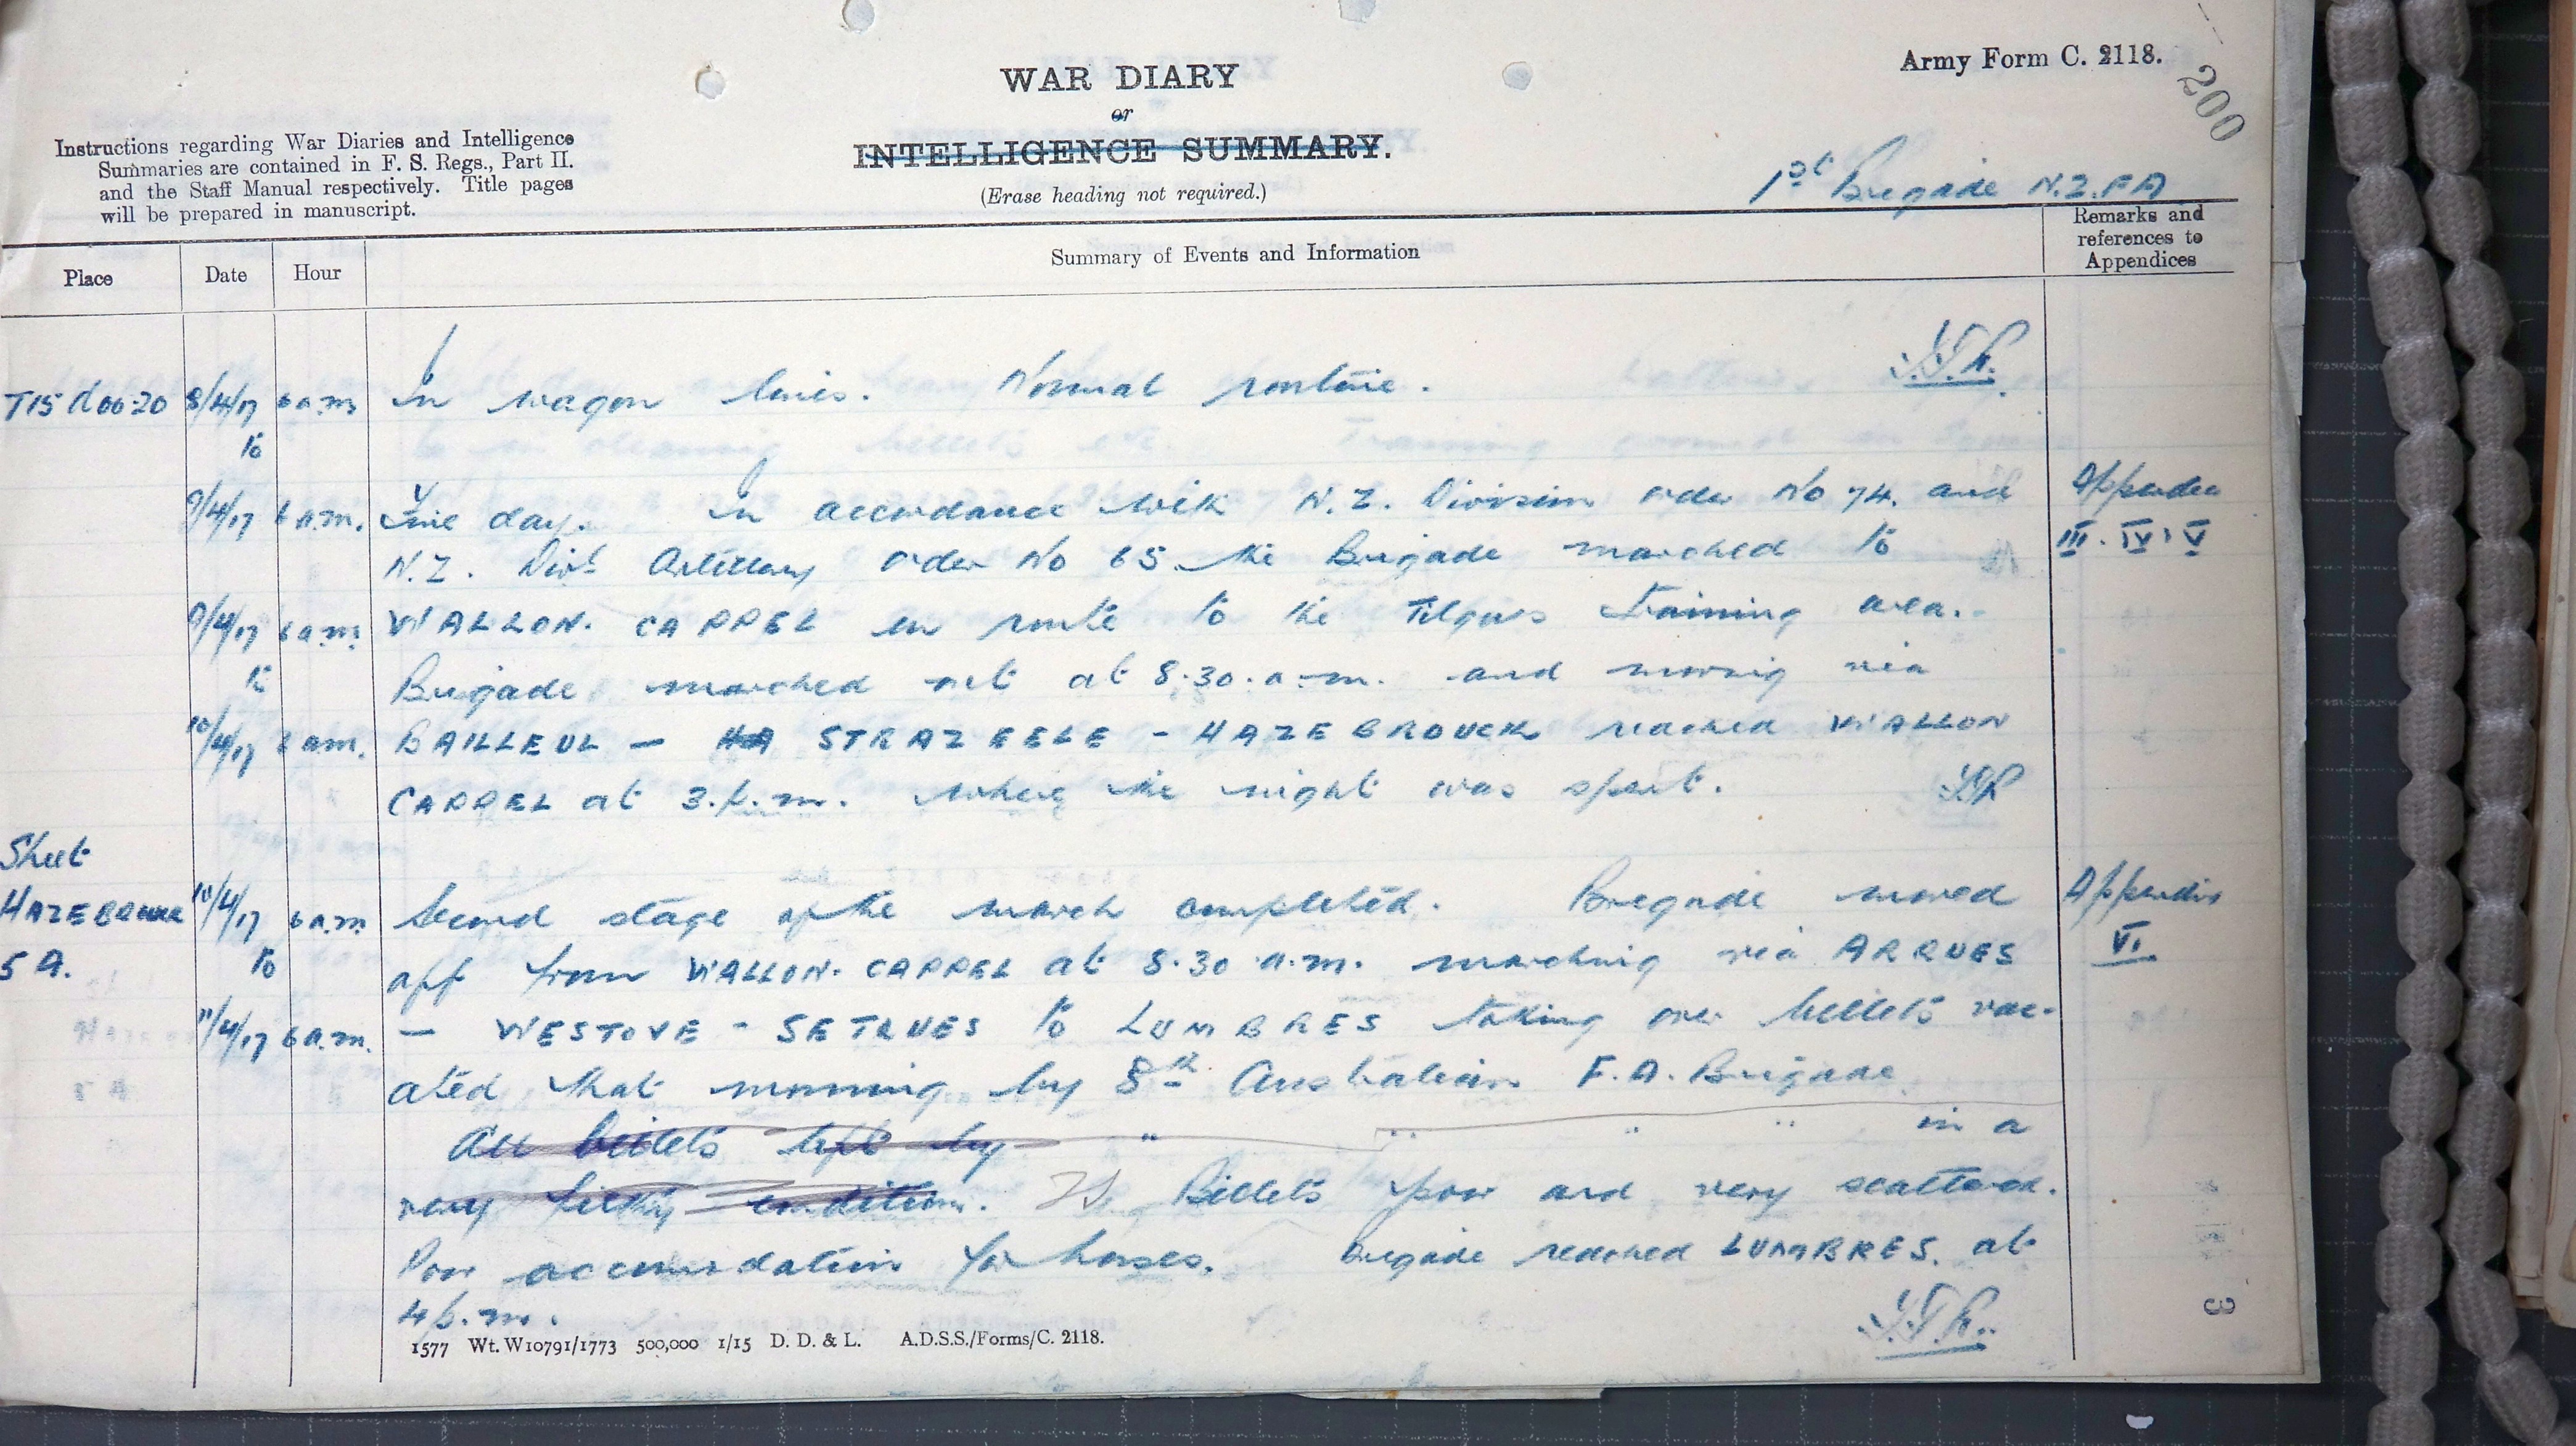 Army Form C. 2118.
200
WAR DIARY
or
INTELLIGENCE SUMMARY.
(Erase heading not required.)
Instructions regarding War Diaries and Intelligence
Summaries are contained in F. S. Regs., Part II.
and the Staff Manual respectively. Title pages
will be prepared in manuscript.
1st Brigade N.Z.F.A
Place Date Hour Summary of Events and Information Remarks and references to Appendices
T15 d 00.20 8/4/17 6 a.m. In wagon lines. Normal routine.
to
9/4/17 6 a.m. Fine day. In accordance with N.Z. Division order No 74. and Appendices
N.Z. Divl Artillery order No 65 the Brigade marched to III. IV. V
9/4/17 6 a.m. WALLON. CAPPEL en route to the Tilques training area.
to Brigade marched out at 8.30. a.m. and moving via
10/4/17 6 am. BAILLEUL — STRAZEELE - HAZEBROUCK reached WALLON
CAPPEL at 3.p.m. where the night was spent.
Sheet
HAZEBROUCK 10/4/17 6 a.m. Second stage of the march completed. Brigade moved Appendix
5A. to off from WALLON. CAPPEL at 8.30 a.m. marching via ARQUES VI.
11/4/17 6 a.m. — WESTOVE - SETQUES to LUMBRES taking over billets vac-
ated that morning by 8th Australian F.A. Brigade
All billets left by " " " " in a
very filthy condition. Billets poor and very scattered.
Poor accomodation for horses. Brigade reached LUMBRES. at
4 p.m.
1577 Wt. W10791/1773 500,000 1/15 D. D. & L. A.D.S.S./Forms/C. 2118.
3